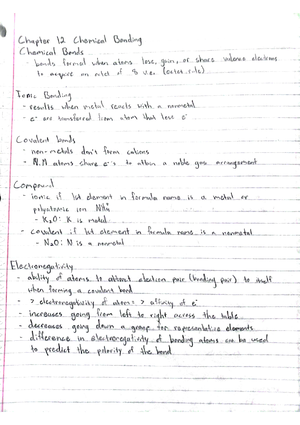 Chapter 12 Chemical Bonding
Chemical Bonds
- bonds formed when atoms lose, gain, or share valence electrons
to acquire an octet of 8 v.e. (octet rule)
Ionic Bonding
- results when metal reacts with a nonmetal
- e⁻ are transferred from atom that less e⁻
Covalent bonds
- non-metals don't form cations
- N.M atoms share e⁻'s to attain a noble gas arrangement
Compound
- ionic if 1st element in formula name is a metal or
polyatomic ion NH₄⁺
- K₂O: K is metal
- covalent if 1st element in formula name is a nonmetal
- N₂O: N is a nonmetal
Electronegativity
- ability of atoms to attract electron pair (bonding pair) to itself
when forming a covalent bond
- > electronegativity of atom: > affinity of e⁻
- increases going from left to right across the table
- decreases going down a group for representative elements
- difference in electronegativity of bonding atoms can be used
to predict the polarity of the bond